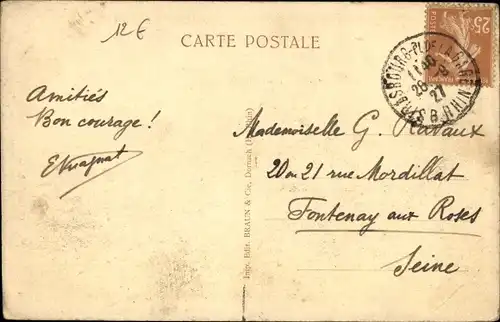 12 €
CARTE POSTALE
25
STRASBOURG-PL. DE LA GARE
11 40
28
27
BAS RHIN
Amitiés
Bon courage !
Mademoiselle G. Ravaux
20 ou 21 rue Mordillat
Fontenay aux Roses
Seine
Impr. Edit. BRAUN & Cie, Dornach (Ht-Rhin)